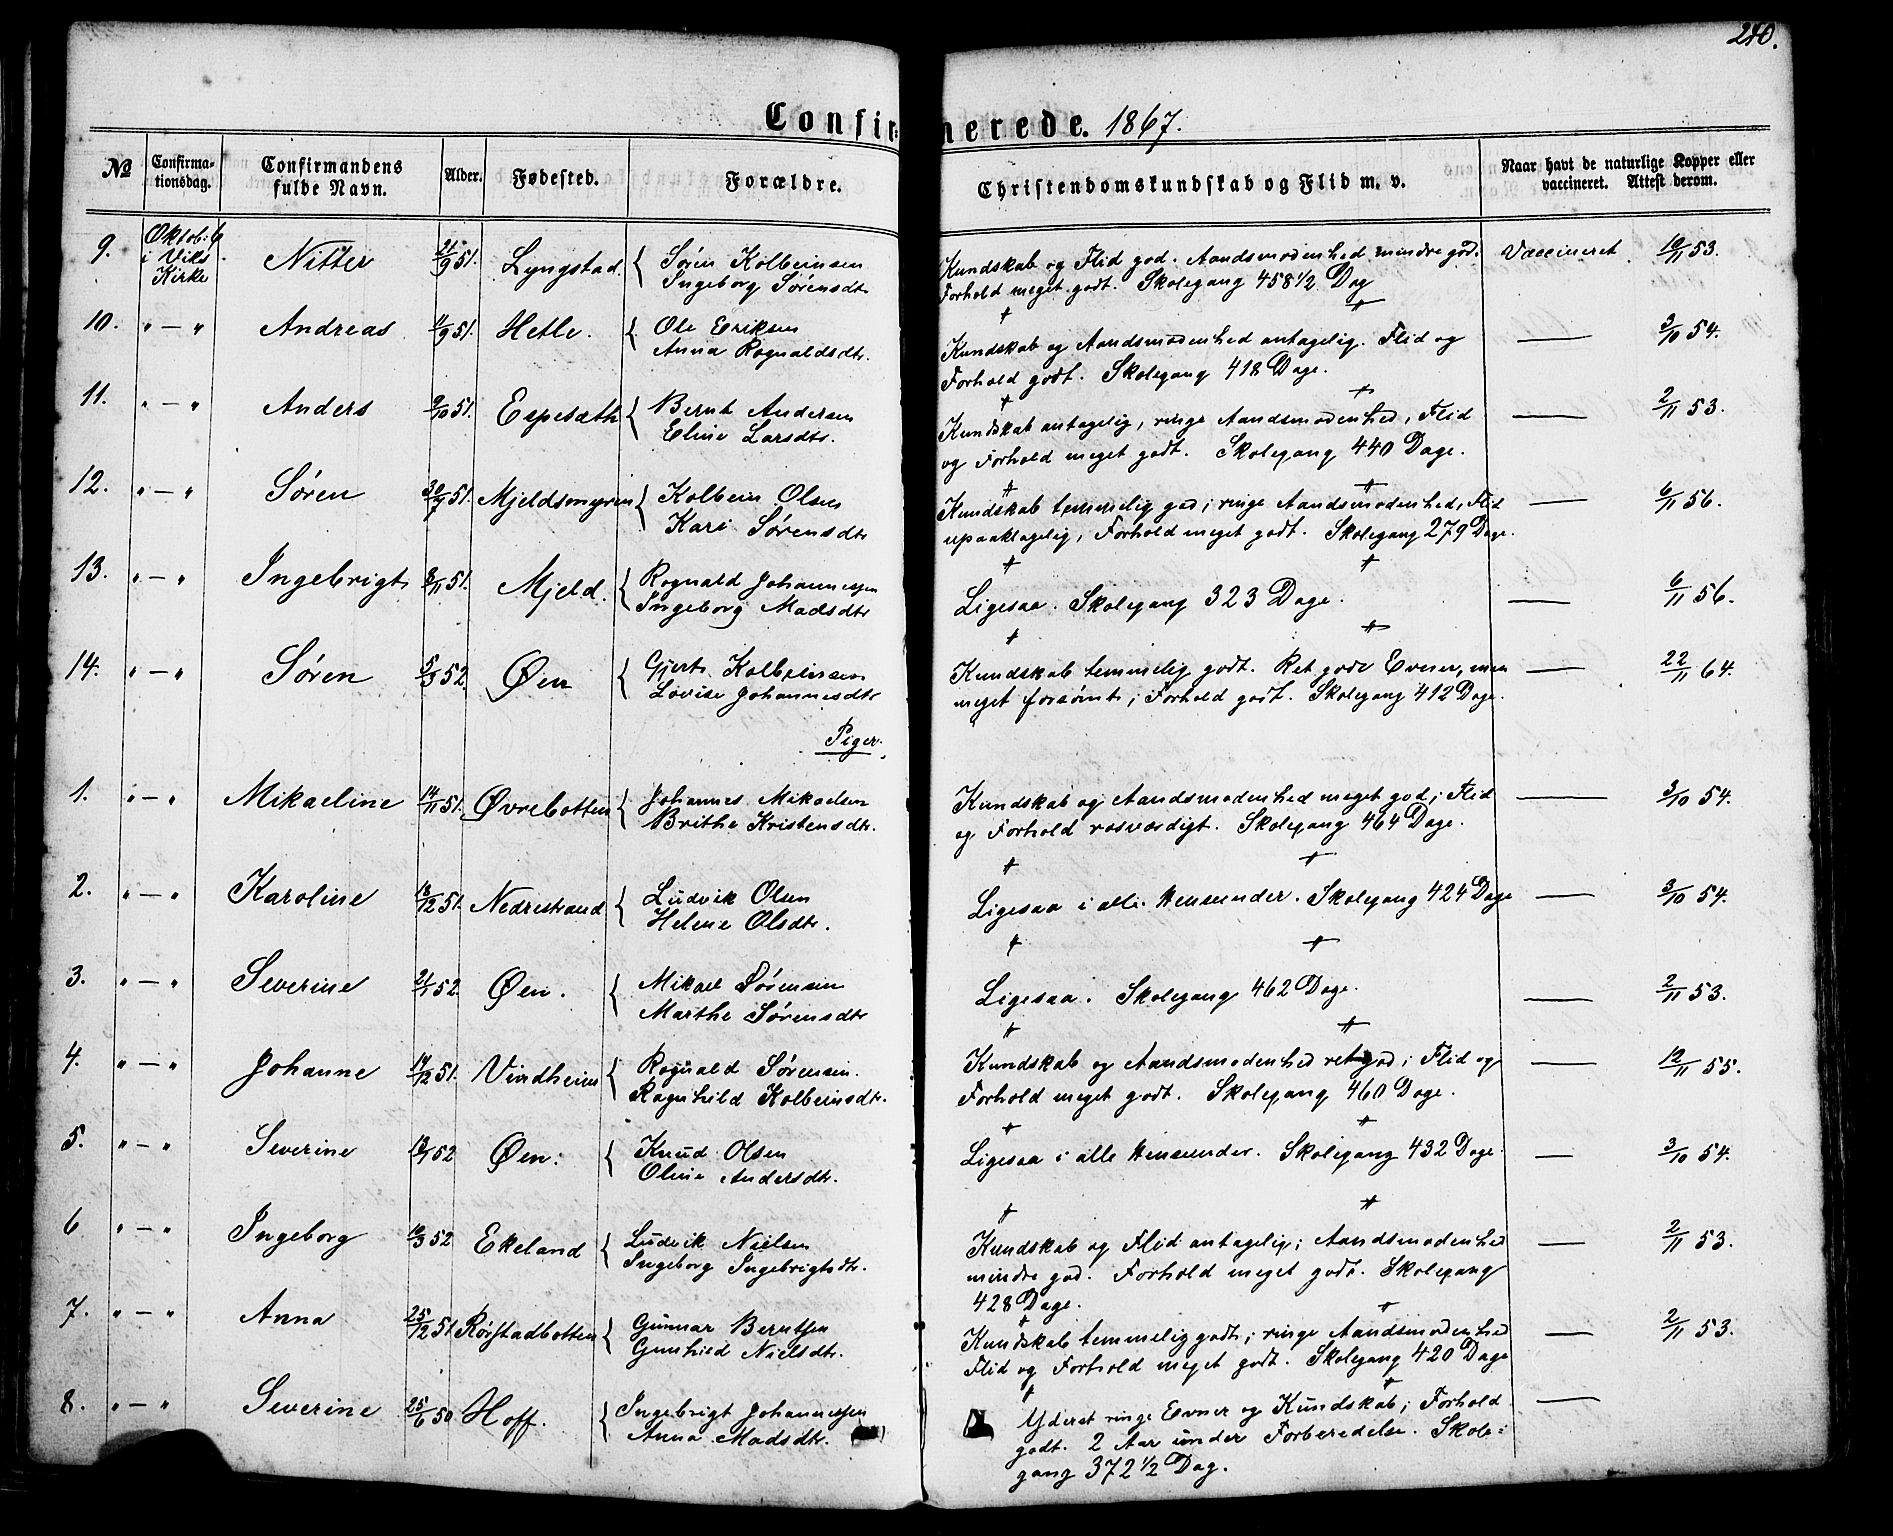 240.
Confirmerede. 1867.
No Confirmationsdag. Confirmandens fulde Navn. Alder. Fødested. Forældre. Christendomskundskab og Flid m. v. Naar havt de naturlige Kopper eller vaccineret. Attest derom.
9. Oktob: 6 i Viks Kirke Nitter 21/9 51. Lyngstad. { Søren Kolbeinsen
Ingeborg Sørensdtr
Kundskab og Flid god. Aandsmodenhed mindre god.
Forhold meget godt. Skolegang 458 1/2 Dag
Vaccineret 10/11 53.
10. " — " Andreas 11/9 51. Hetle. { Ole Eriksen
Anna Rognaldsdtr.
Kundskab og Aandsmodenhed antagelig. Flid og
Forhold godt. Skolegang 418 Dage.
— 3/10 54.
11. " — " Anders 9/10 51. Espesæth { Bernt Andersen
Eline Larsdtr.
Kundskab antagelig, ringe Aandsmodenhed, Flid
og Forhold meget godt. Skolegang 440 Dage.
— 2/11 53.
12. " — " Søren 30/7 51. Mjeldsmyren { Kolbein Olsen
Kari Sørensdtr
Kundskab temmelig god; ringe Aandsmodenhed, Flid
upaaklagelig, Forhold meget godt. Skolegang 279 Dage.
— 6/11 56.
13. " — " Ingebrigt 8/11 51. Mjeld. { Rognald Johannessen
Ingeborg Madsdtr
Ligesaa. Skolegang 323 Dage.
— 6/11 56.
14. " — " Søren 5/3 52. Øen { Gjert Kolbeinsen
Lovise Johannesdtr
Kundskab temmelig godt. Ret gode Evner, men
meget forsømt; Forhold godt. Skolegang 412 Dage.
— 22/11 64.
Piger.
1. " — " Mikaeline 14/11 51. Øvrebotten { Johannes Mikaelsen
Brithe Kristensdtr.
Kundskab og Aandsmodenhed meget god; Flid
og Forhold rosværdigt. Skolegang 464 Dage.
— 3/10 54.
2. " — " Karoline 18/12 51. Nedrestrand { Ludvik Olsen
Helene Olsdtr.
Ligesaa i alle Henseender. Skolegang 424 Dage
— 3/10 54.
3. " — " Severine 21/1 52 Øen. { Mikael Sørensen
Marthe Sørensdtr
Ligesaa. Skolegang 462 Dage.
— 2/11 53.
4. " — " Johanne 14/12 51. Vindheim { Rognald Sørensen.
Ragnhild Kolbeinsdtr.
Kundskab og Aandsmodenhed ret god; Flid og
Forhold meget godt. Skolegang 460 Dage.
— 12/11 55.
5. " — " Severine 13/1 52 Øen. { Knud Olsen
Oline Andersdtr.
Ligesaa i alle Henseender. Skolegang 432 Dage.
— 3/10 54.
6 " — " Ingeborg 10/3 52 Ekeland { Ludvik Nielsen
Ingeborg Ingebrigtsdtr.
Kundskab og Flid antagelig; Aandsmodenhed
mindre god. Forhold meget godt. Skolegang
428 Dage.
— 2/11 53.
7. " — " Anna 25/12 51 Rørstadbotten { Gunnar Berntsen
Gunhild Nielsdtr.
Kundskab temmelig godt; ringe Aandsmodenhed
Flid og Forhold meget godt. Skolegang 420 Dage
— 2/11 53.
8. " — " Severine 25/6 50 Hoff. { Ingebrigt Johannessen
Anna Madsdtr.
Yderst ringe Evner og Kundskab; Forhold
godt. 2 Aar under Forberedelse. Skole=
gang 372 1/2 Dag.
—